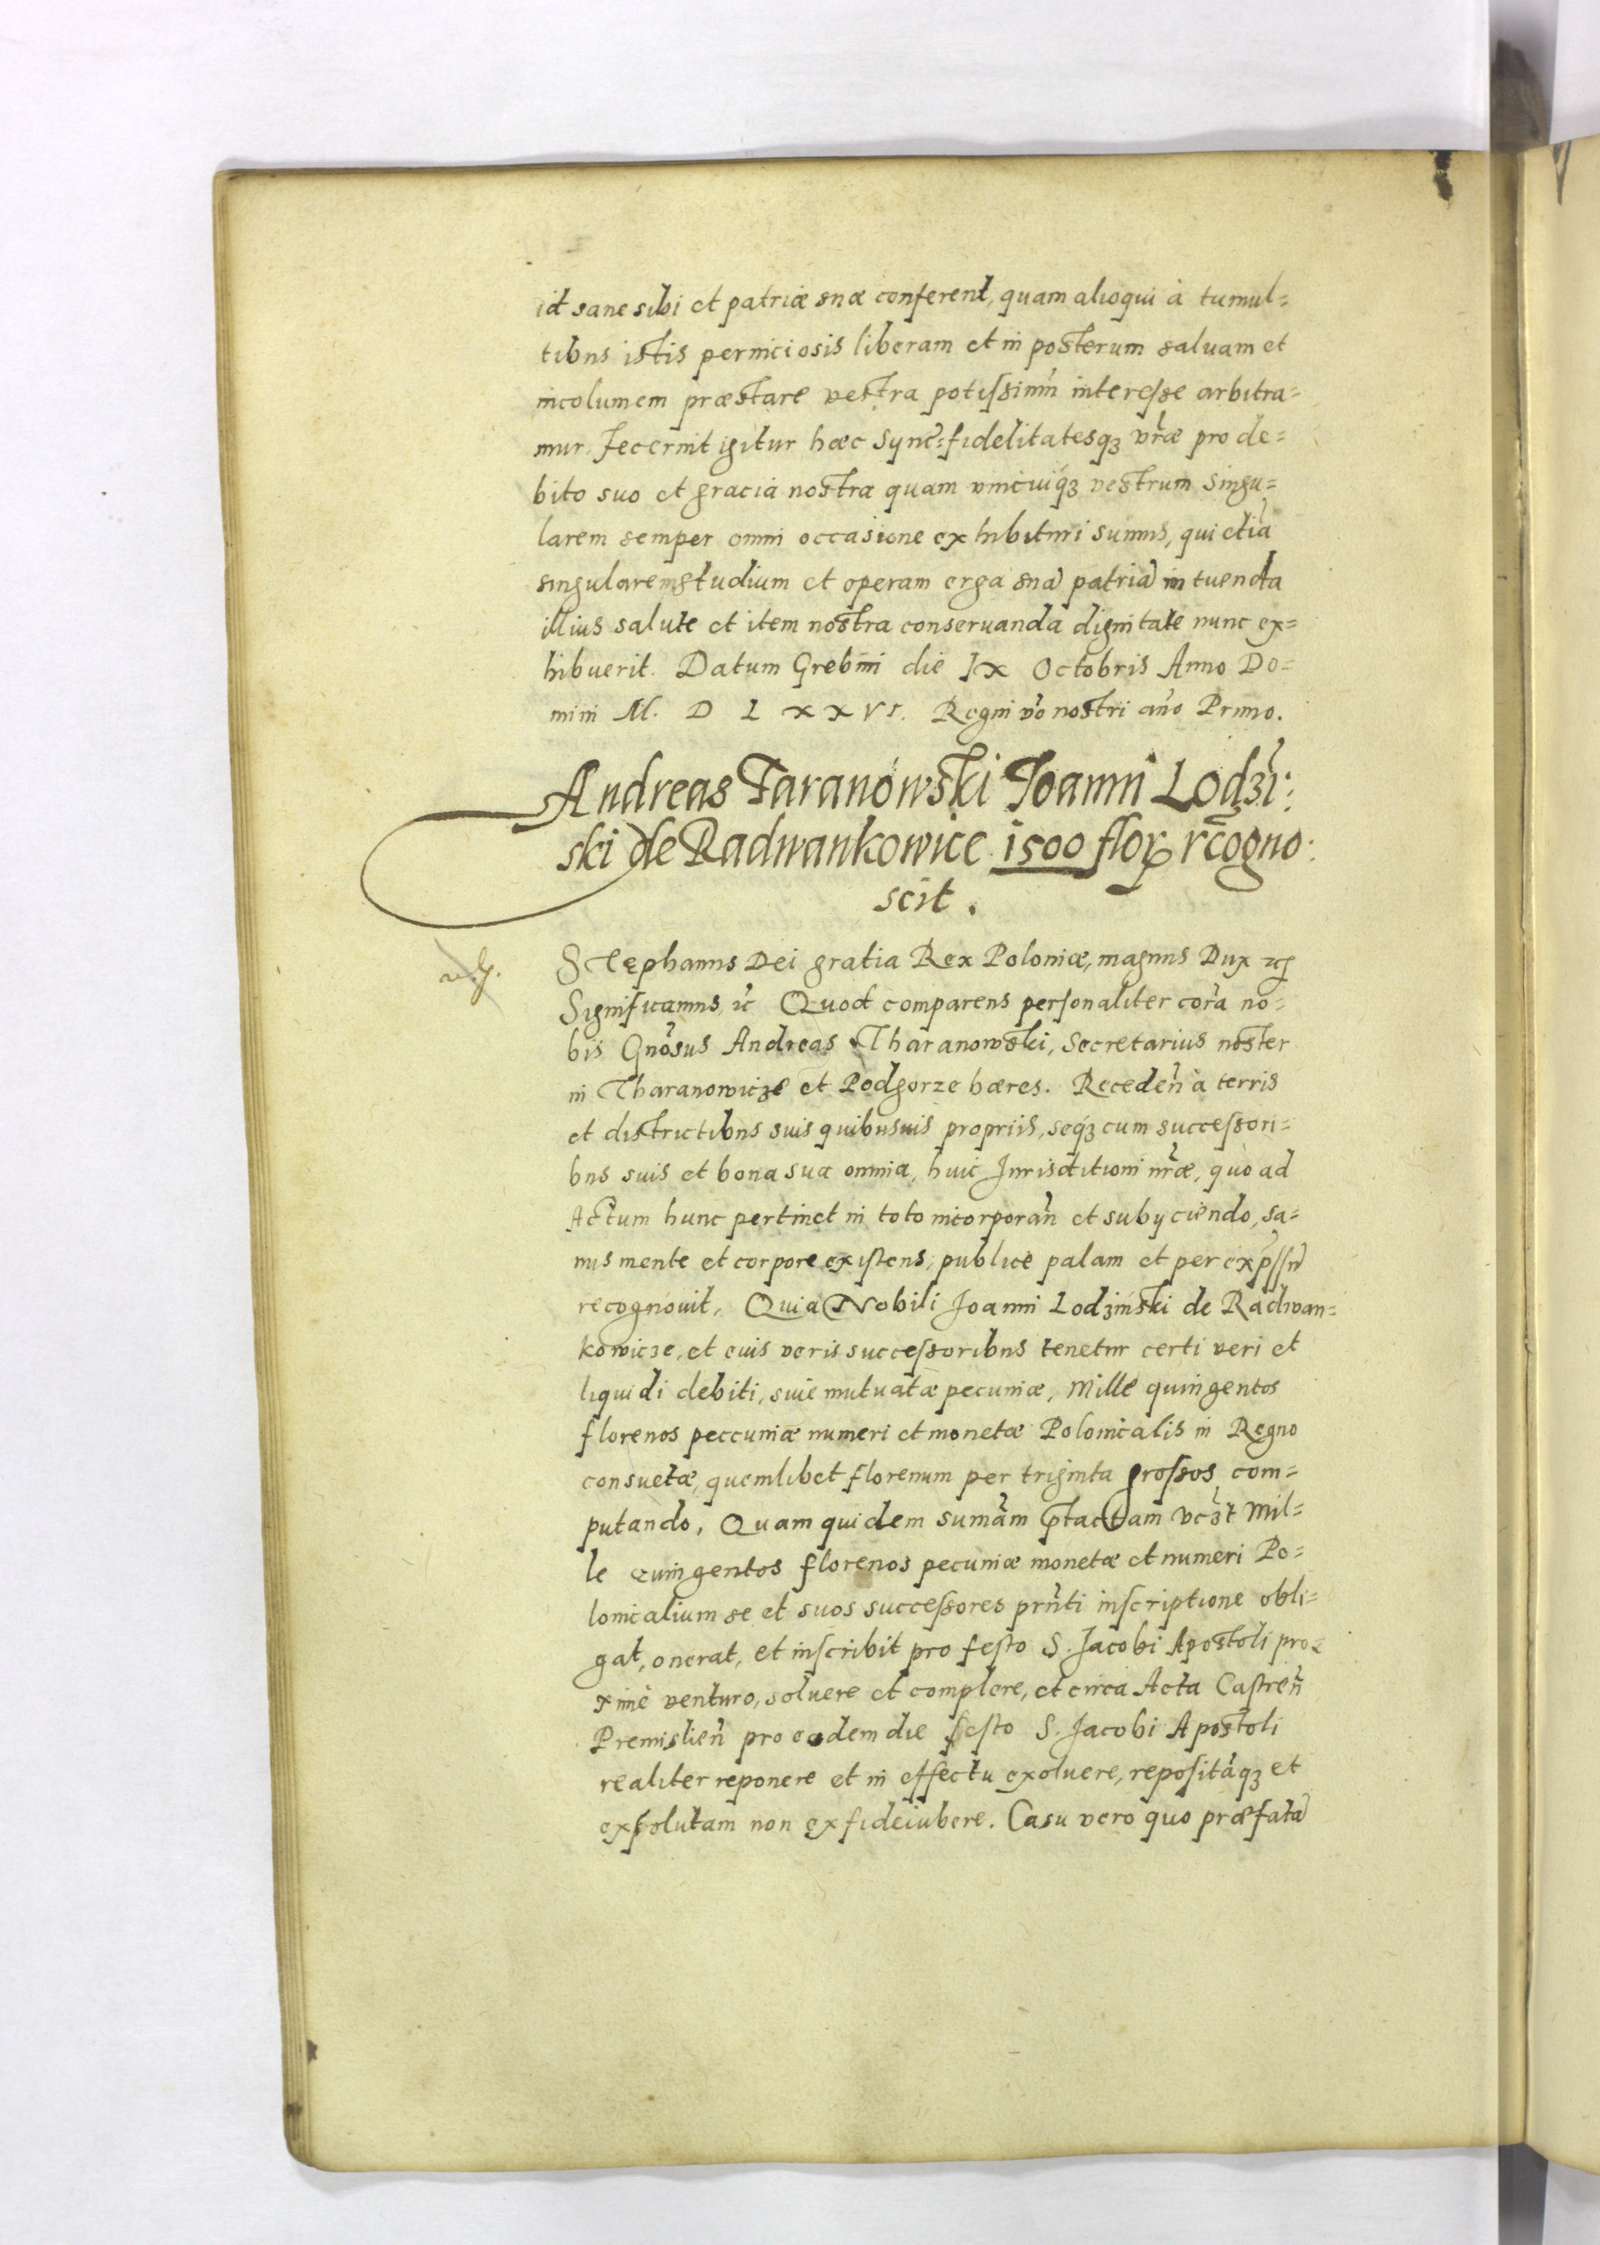 id sane sibi et patriæ suæ conferent, quam alioqui à tumul=
tibus istis perniciosis liberam et in posterum saluam et
incolumem præstare vestra potissimũ interesse arbitra=
mur. Fecerint igitur hæc Sync: fidelitatesqȝ vr̃æ pro de=
bito suo et gracia nostra quam vnicuiqȝ vestrum singu=
larem semper omni occasione exhibituri sumus, qui etiã
singularem studium et operam erga suã patriã in tuenda
illius salute et item nostra conseruanda dignitate nunc ex=
hibuerit. Datum Grebini die IX Octobris Anno Do=
mini M. D L XXVI. Regni vo nostri año Primo.
Andreas Taranowski Ioanni Lodzĩ:
ski de Radwankowice 1500 flor rc̃ogno:
scit.
Stephanus Dei gratia Rex Poloniæ, magnus Dux etc
Significamus, ic̃ Quod comparens personaliter corã no=
bis Gnõsus Andreas Tharanowski, Secretarius noster
in Tharanowicze et Podgorze hæres. Recedeñ à terris
et districtibus suis quibusuis propriis, seqȝ cum successori=
bus suis et bona sua omnia, huic Iurisditioni nr̃æ, quo ad
Actum hunc pertinet in toto incorporañ et subyciendo, sa=
nus mente et corpore existens, publicè palam et per exp̃ssũ
recognouit, Quia Nobili Joanni Lodziński de Radwan=
kowicze, et euis veris successoribus tenetur certi veri et
liquidi debiti, suæ mutuatæ pecuniæ, Mille quingentos
florenos peccuniæ numeri et monetæ Polonicalis in Regno
consuetæ, quemlibet florenum per triginta grossos com=
putando, Quam quidem sumãm p̃tactam vcȝ̃t Mil=
le quingentos florenos pecuniæ monetæ et numeri Po=
lonicalium se et suos successores prñti inscriptione obli=
gat, onerat, et inscribit pro festo S. Jacobi Apostoli pro=
ximè venturo, soluere et complere, et circa Acta Castreñ
Premislieñ pro eodem die festo S. Jacobi Apostoli
realiter reponere et in effectu exoluere, repositãqȝ et
exsolutam non exfideiubere. Casu vero quo præfatã